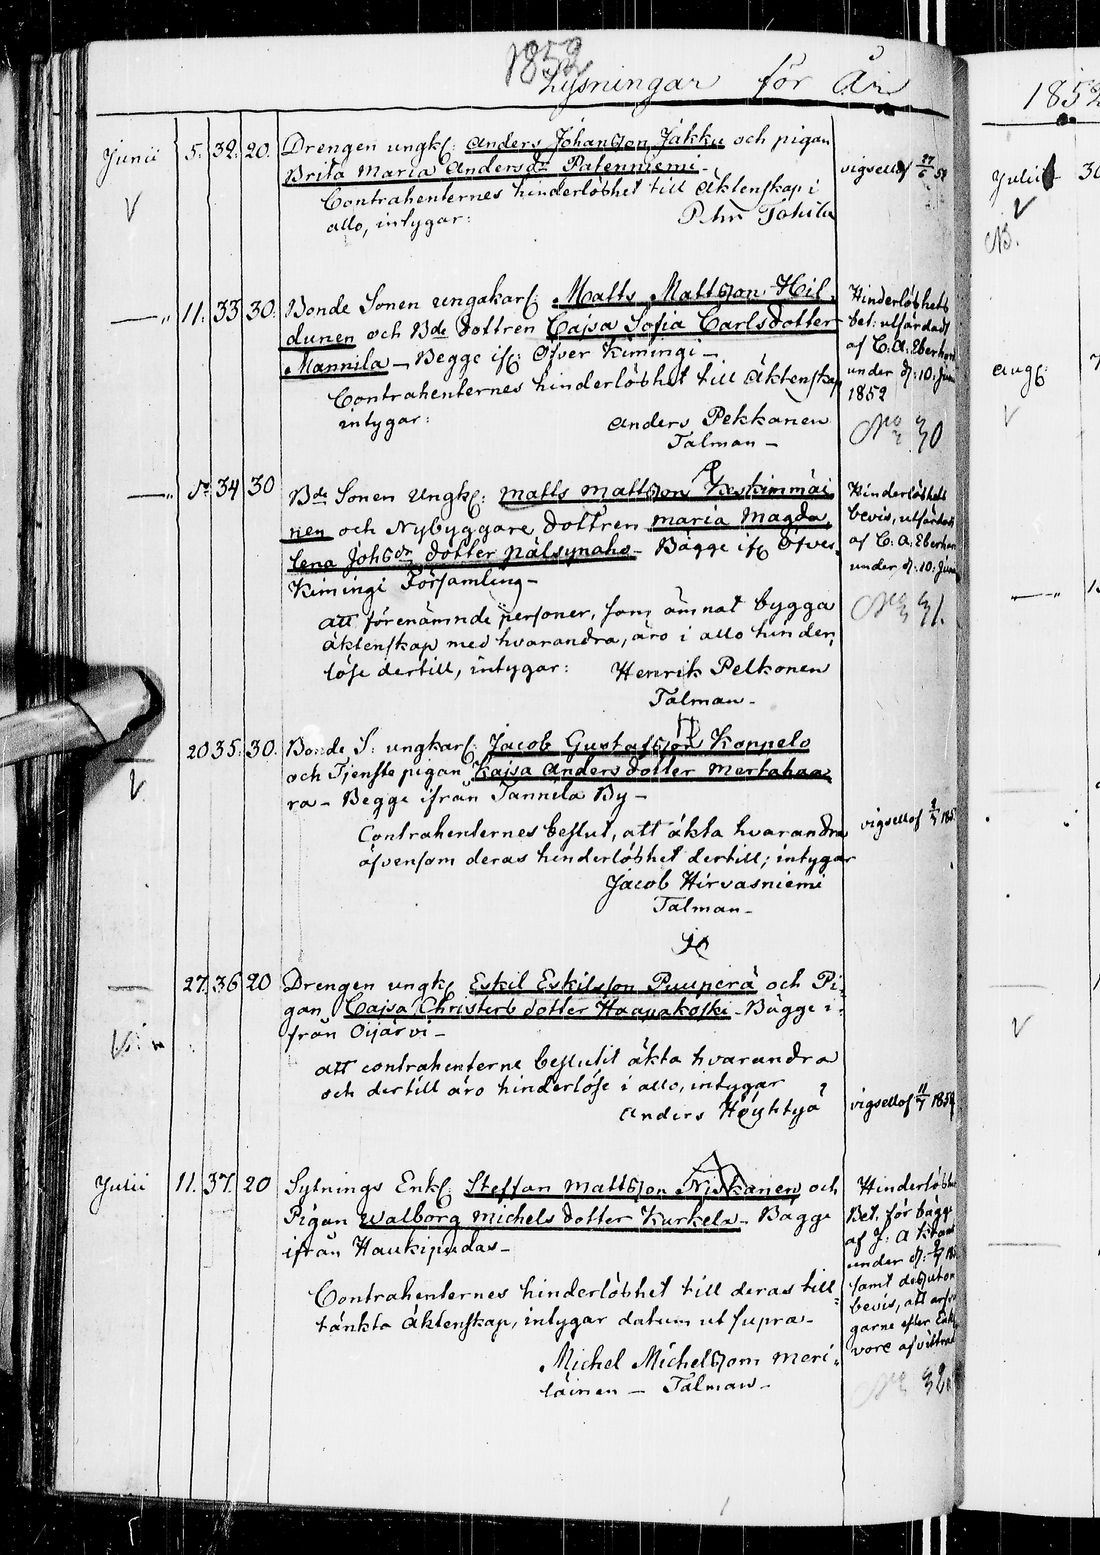 1852
Lysningar för År
Junii 5. 32. 20. Drengen ungk: Anders Johansson Jakku och pigan
Brita Maria Andersdr Patenniemi
Contrahenternes hinderlöshet till äktenskap i
allo, intygar:
vigsell af 27/6 52
11. 33 30. Bonde Sonen ungakarl: Matts Mattsson Hil-
dunen och Bde dottren Cajsa Sofia Carlsdotter
Mannila – Begge ifr: Öfver Kimingi –
Contrahenternes hinderlöshet till Äktenskap
intygar: Anders Pekkanen
Talman –
Hinderlöshets
bet: utfärdadt
af C. A. Eberhar
under d: 10: Juni
1852
No 30
34 30 Bde Sonen Ungk: Matts Mattsson Keskimmäi-
nen och Nybyggare dottren Maria Magda-
lena Johsdr dotter Pälsynaho – Bägge ifr Öfver
Kimingi Församling –
att förenämnde personer, som ämnat bygga
äktenskap med hvarandra, äro i allo hinder-
löse dertill, intygar: Henrik Pelkonen
Talman –
Hinderlöshets
bevis, utfärdadt
af C: A: Eberhar
under d: 10: Juni
No 31.
20 35. 30. Bonde S: ungkarl: Jacob Gustafsson Koppelo
och Tjenste pigan Kajsa Anders dotter Mertahaa
ra – Begge ifrån Tannila By –
Contrahenternes beslut, att äkta hvarandra
äfvensom deras hinderlöshet dertill; intygar
Jacob Hirvasniemi
Talman –
27. 36 20 Drengen ungk Eskil Eskilsson Puuperä och Pi-
gan Cajsa Christers dotter Haapakoski – Bägge i-
från Oijärvi –
att contrahenterne beslutit äkta hvarandra
och dertill äro hinderlöse i allo, intygar
Anders Höyhtyä
Julii 11. 37. 20 Sytnings Enkl: Steffan Mattsson Niskanen och
Pigan Walborg Michels dotter Kurkela – Bägge
ifrån Haukipudas –
Contrahenternes hinderlöshet till deras till-
tänkta Äktenskap, intygar datum ut supra –
Michel Michelsson Meri-
läinen – Talman –
Hinderlöshets
Bet. för bägge
af J: A
under d:
samt dessutom
bevis, att
garne efter
vore afvittra
No 32
1852
Julii 30
NB.
Aug: